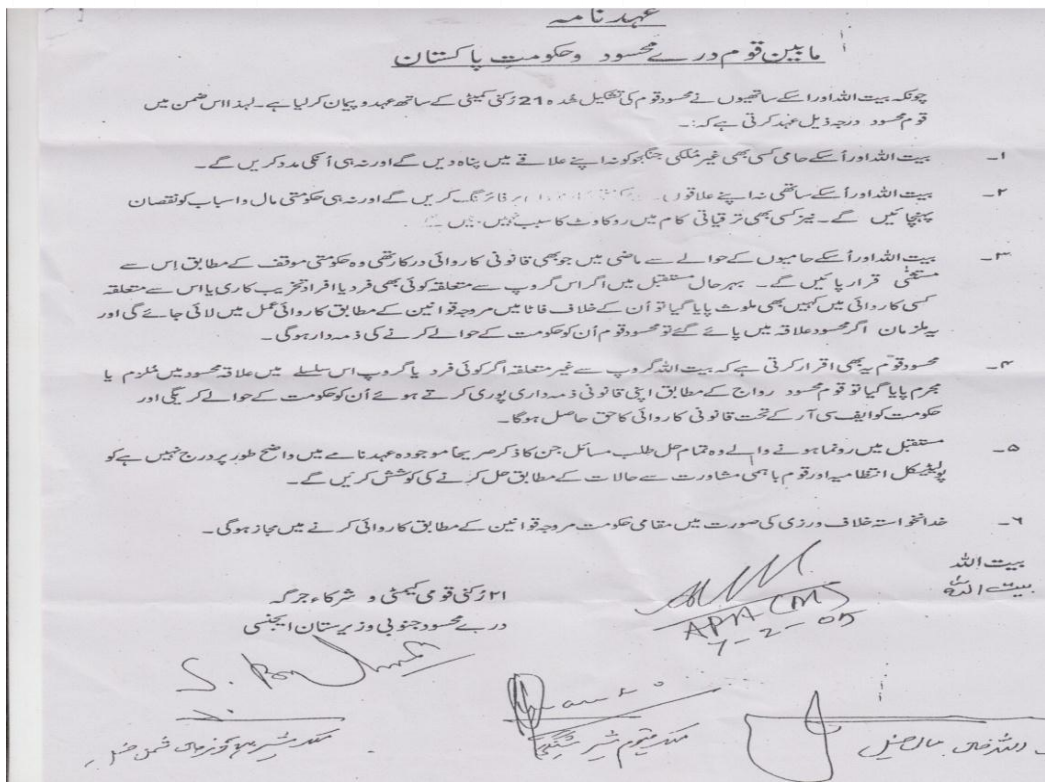 عہد نامہ
مابین قوم درے محسود وحکومت پاکستان
چونکہ بیت اللہ اور اسکے ساتھیوں نے محسود قوم کی تشکیل شدہ 21 رُکنی کمیٹی کے ساتھ عہد و پیمان کر لیا ہے۔ لہذا اس ضمن میں
قوم محسود درجہ ذیل عہد کرتی ہے کہ:۔
۱۔ بیت اللہ اور اُسکے حامی کسی بھی غیر مُلکی جنگجو کو نہ اپنے علاقے میں پناہ دیں گے اور نہ ہی اُنکی مدد کریں گے۔
۲۔ بیت اللہ اور اُسکے ساتھی نہ اپنے علاقوں پر فائرنگ کریں گے اور نہ ہی حکومتی مال و اسباب کو نقصان
پہنچائیں گے۔ نیز کسی بھی ترقیاتی کام میں روکاوٹ کا سبب نہیں
۳۔ بیت اللہ اور اُسکے حامیوں کے حوالے سے ماضی میں جو بھی قانونی کاروائی درکار تھی وہ حکومتی موقف کے مطابق اِس سے
مستثنیٰ قرار پائیں گے۔ بہرحال مستقبل میں اگر اس گروپ سے متعلقہ کوئی بھی فرد یا افراد تخریب کاری یا اس سے متعلقہ
کسی کاروائی میں کہیں بھی ملوث پایا گیا تو اُن کے خلاف فاٹا میں مروجہ قوانین کے مطابق کاروائی عمل میں لائی جائے گی اور
یہ ملزمان اگر محسود علاقہ میں پائے گئے تو محسود قوم اُن کو حکومت کے حوالے کرنے کی ذمہ دار ہوگی۔
۴۔ محسود قوم یہ بھی اقرار کرتی ہے کہ بیت اللہ گروپ سے غیر متعلقہ اگر کوئی فرد یا گروپ اس سلسلے میں علاقہ محسود میں مُلزم یا
مجرم پایا گیا تو قوم محسود رواج کے مطابق اپنی قانونی ذمہ داری پوری کرتے ہوئے اُن کو حکومت کے حوالے کریگی اور
حکومت کو ایف سی آر کے تحت قانونی کاروائی کا حق حاصل ہوگا۔
۵۔ مستقبل میں رونما ہونے والے وہ تمام حل طلب مسائل جن کا ذکر صریحاً موجودہ عہد نامے میں واضح طور پر درج نہیں ہے کو
پولیٹیکل انتظامیہ اور قوم باہمی مشاورت سے حالات کے مطابق حل کرنے کی کوشش کریں گے۔
۶۔ خدانخواستہ خلاف ورزی کی صورت میں مقامی حکومت مروجہ قوانین کے مطابق کاروائی کرنے میں مجاز ہوگی۔
بیت اللہ
بیت اللہ
APA (M)
7-2-05
۲۱ رُکنی قومی کمیٹی و شرکاء جرگہ
درے محسود جنوبی وزیرستان ایجنسی